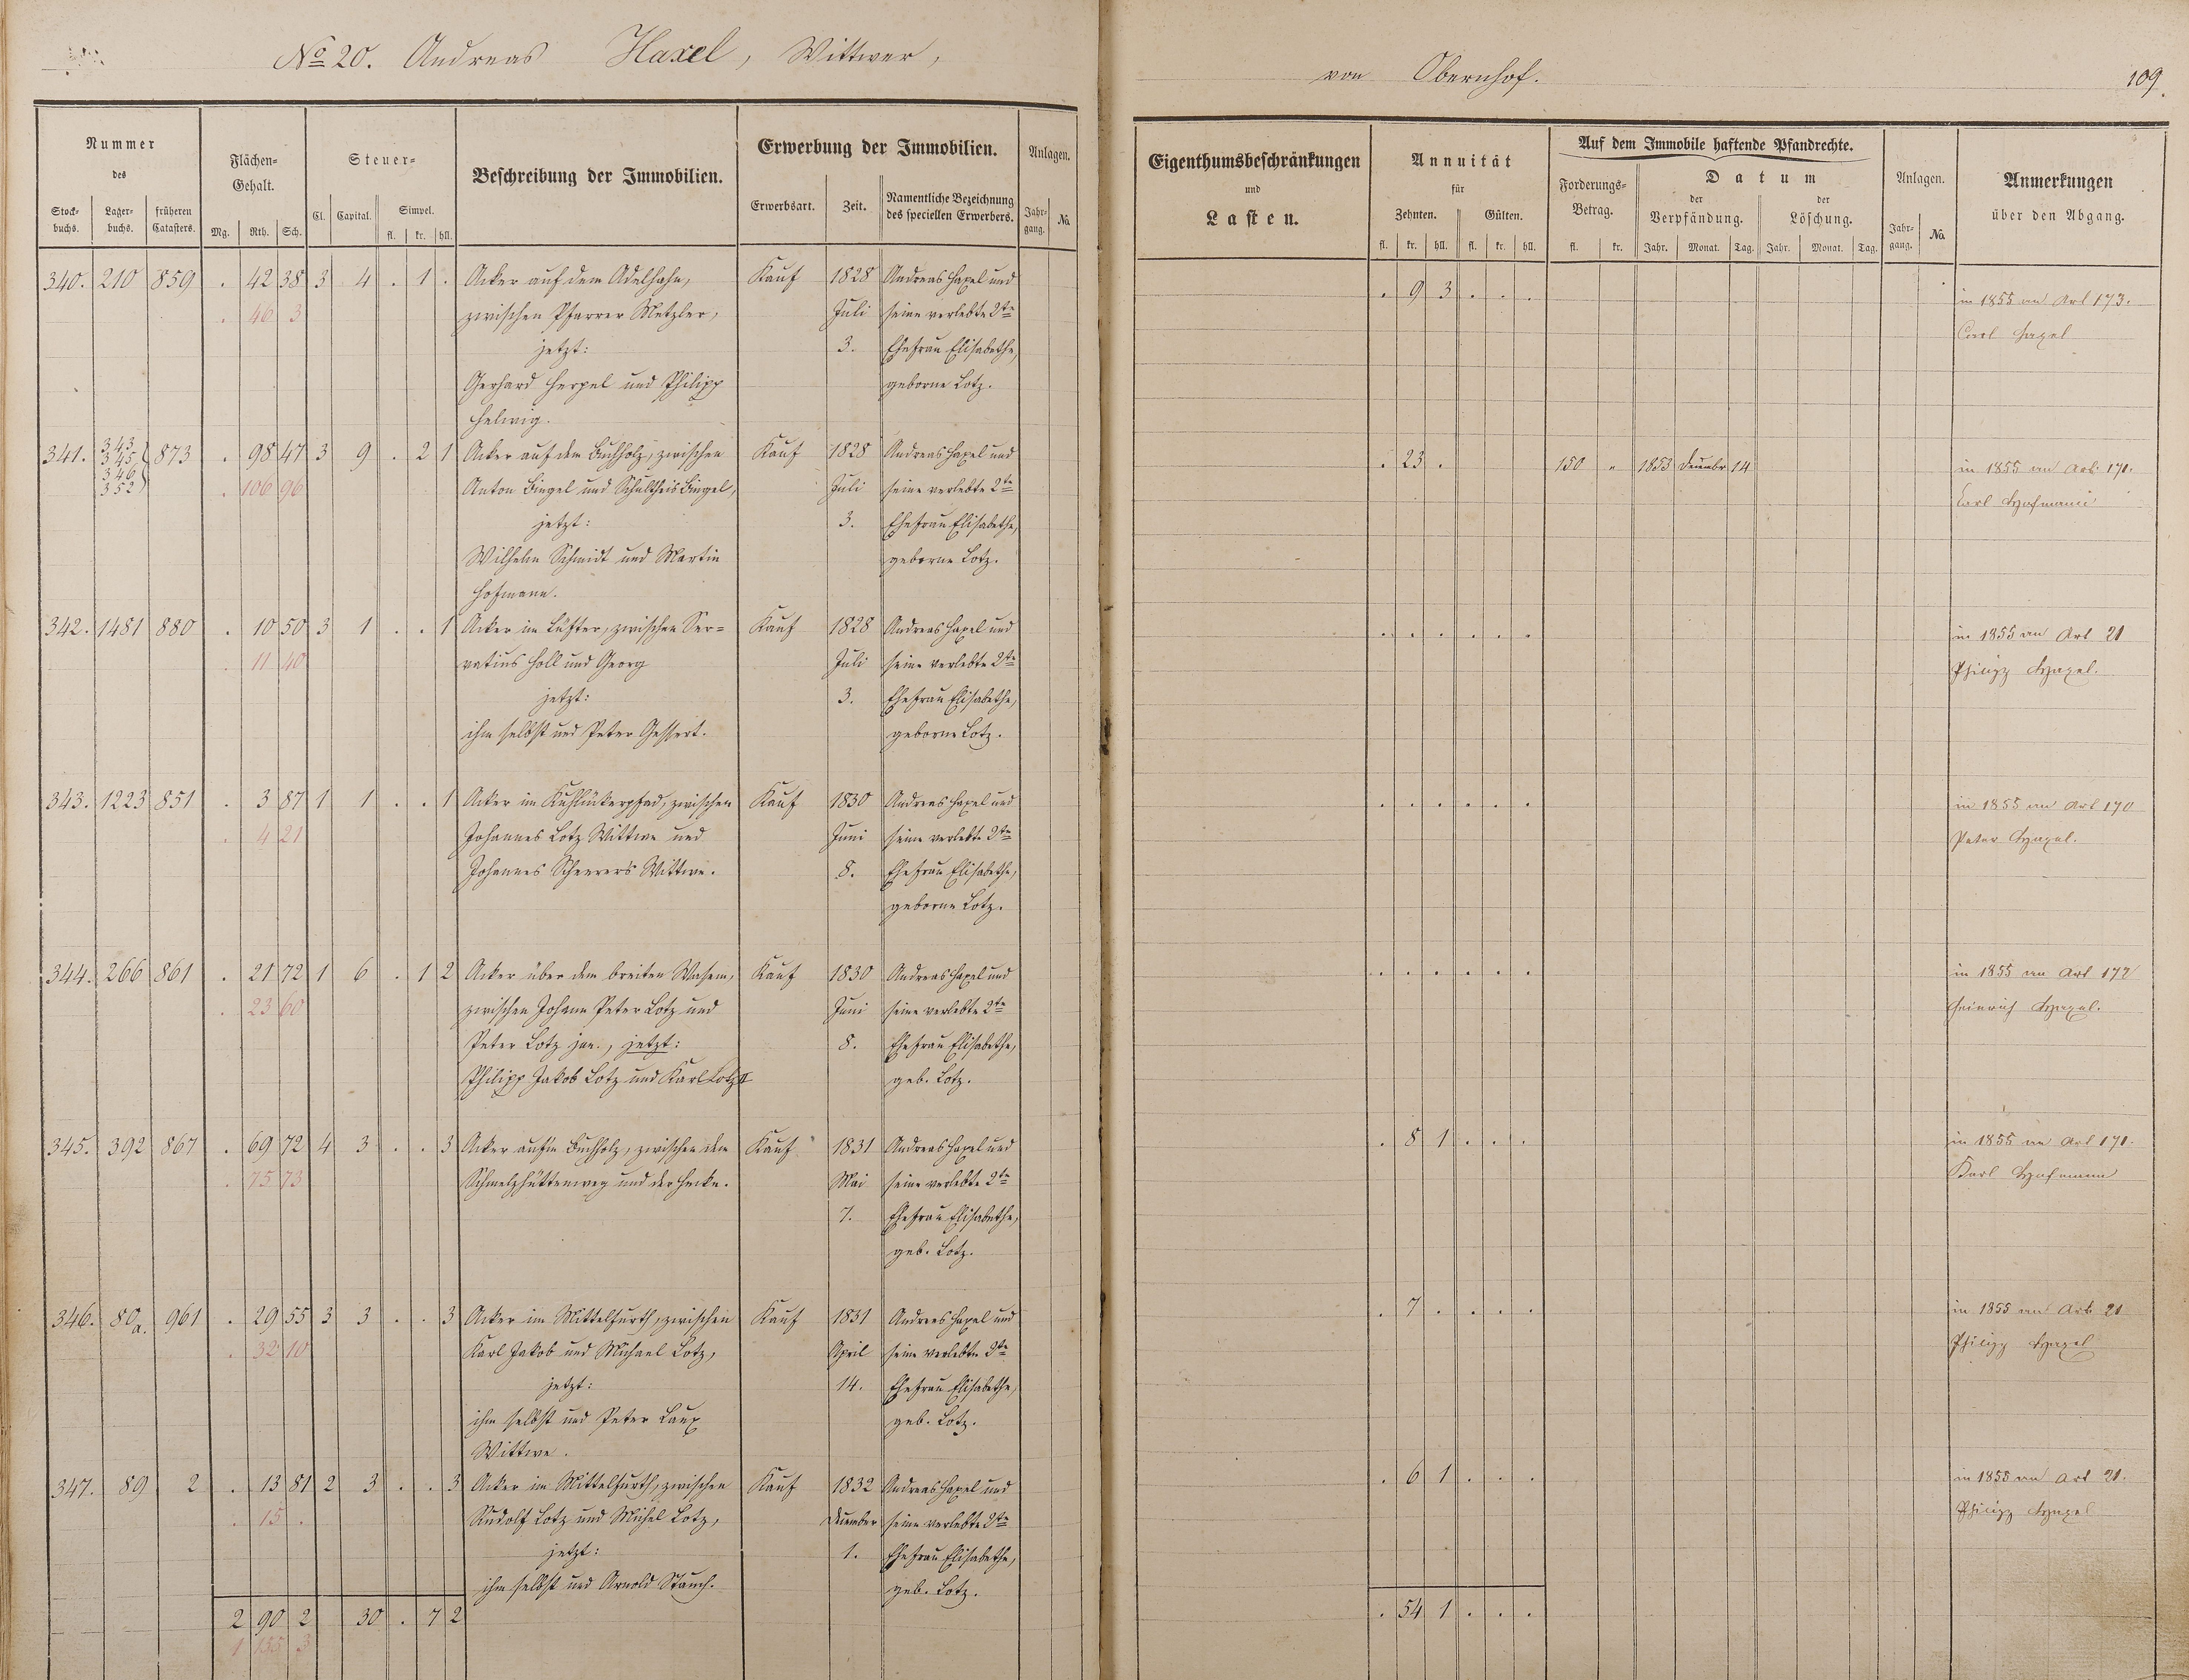 No 20. Andreas Haxel, Wittwer,
von Obernhof.
109.
Nummer
des
Stock-
buchs.
Lager-
buchs.
früheren
Catasters.
Flächen-
Gehalt.
Mg. Rth. Sch.
Steuer-
Cl. Capital. Simpel.
fl. kr. hll.
Beschreibung der Immobilien.
Erwerbung der Immobilien.
Erwerbsart. Zeit.
Namentliche Bezeichnung
des speciellen Erwerbers.
Anlagen.
Jahr-
gang.
No.
Eigenthumsbeschränkungen
und
Lasten.
Annuität
für
Zehnten. Gülten.
fl. kr. hll. fl. kr. hll.
Auf dem Immobile haftende Pfandrechte.
Forderungs-
Betrag.
fl. kr.
Datum
der
Verpfändung.
der
Löschung.
Jahr. Monat. Tag. Jahr. Monat. Tag.
Anlagen.
Jahr-
gang.
No.
Anmerkungen
über den Abgang.
340. 210 859 . 42 38 3 4 . 1 . Acker auf dem Adelhahn, Kauf 1828 Andreas Haxel und . 9 3 . . . in 1855 an Art 173.
. 46 3 zwischen Pfarrer Metzler, Juli seine verlebte 2te Carl Haxel
jetzt: 3. Ehefrau Elisabethe,
Gerhard Herpel und Philipp geborne Lotz.
Helwig.
341. 343 345 346 352 873 . 98 47 3 9 . 2 1 Acker auf dem Buchholz, zwischen Kauf 1828 Andreas Haxel und . 23 . 150 „ 1853 Decembr 14 in 1855 an Art. 171.
. 106 96 Anton Bingel und Schultheis Bingel, Juli seine verlebte 2te Carl Hofmann
jetzt: 3. Ehefrau Elisabethe,
Wilhelm Schmidt und Martin geborne Lotz.
Hofmann.
342. 1481 880 . 10 50 3 1 . . 1 Acker im Lüster, zwischen Ser- Kauf 1828 Andreas Haxel und . . . . . . in 1855 an Art 21
. 11 40 vatius Holl und Georg Juli seine verlebte 2te Philipp Haxel.
jetzt: 3. Ehefrau Elisabethe,
ihm selbst und Peter Gessert. geborne Lotz.
343. 1223 851 . 3 87 1 1 . . 1 Acker im Kuhlückerpfad, zwischen Kauf 1830 Andreas Haxel und . . . . . . in 1855 an Art 170
. 4 21 Johannes Lotz Wittwe und Juni seine verlebte 2te Peter Haxel.
Johannes Scheurer's Wittwe. 8. Ehefrau Elisabethe,
geborne Lotz.
344. 266 861 . 21 72 1 6 . 1 2 Acker über dem breiten Wasem, Kauf 1830 Andreas Haxel und . . . . . . in 1855 an Art 172
. 23 60 zwischen Johann Peter Lotz und Juni seine verlebte 2te Heinrich Haxel.
Peter Lotz jun., jetzt: 8. Ehefrau Elisabethe,
Philipp Jakob Lotz und Karl Lotz II geb. Lotz.
345. 392 867 . 69 72 4 3 . . 3 Acker auf'm Buchholz, zwischen dem Kauf 1831 Andreas Haxel und . 8 1 . . . in 1855 an Art 171.
. 75 73 Schmelzhüttenweg und der Hecke. Mai seine verlebte 2te Karl Hofmann
7. Ehefrau Elisabethe,
geb. Lotz.
346. 80a. 961 . 29 55 3 3 . . 3 Acker im Mittelfurth, zwischen Kauf 1831 Andreas Haxel und . 7 . . . . in 1855 an Art 21
. 32 10 Karl Jakob und Michael Lotz, April seine verlebte 2te Philipp Haxel
jetzt: 14. Ehefrau Elisabethe,
ihm selbst und Peter Laux geb. Lotz.
Wittwe.
347. 89 2 . 13 81 2 3 . . 3 Acker im Mittelfurth, zwischen Kauf 1832 Andreas Haxel und . 6 1 . . . in 1855 an Art 21.
. 15 . Rudolf Lotz und Michel Lotz, December seine verlebte 2te Philipp Haxel
jetzt: 1. Ehefrau Elisabethe,
ihm selbst und Arnold Stauch. geb. Lotz.
2 90 2 30 . 7 2 . 54 1 . . .